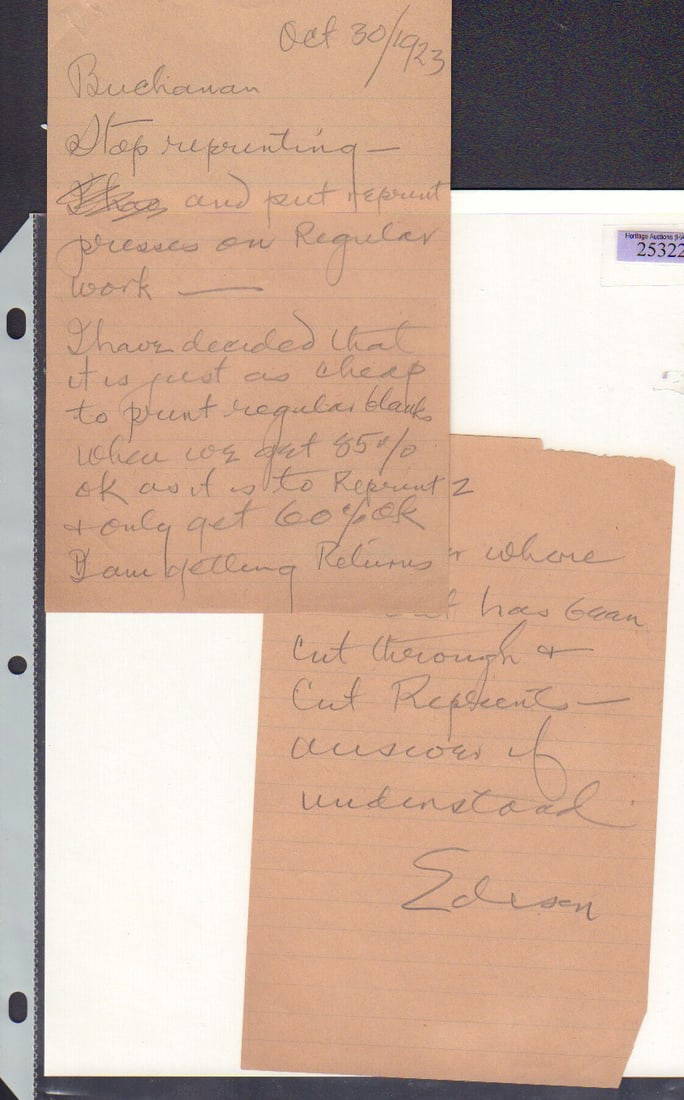 Oct 30/1923
Buchanan
Stop reprinting —
and put reprint
presses on Regular
work —
I have decided that
it is just as cheap
to print regular blanks
when we get 85%
ok as it is to Reprint 2
+ only get 60% ok
I am getting Returns
where
has been
cut through +
Cut Reprints —
answer if
understood
Edison
Heritage Auctions (HA
25322